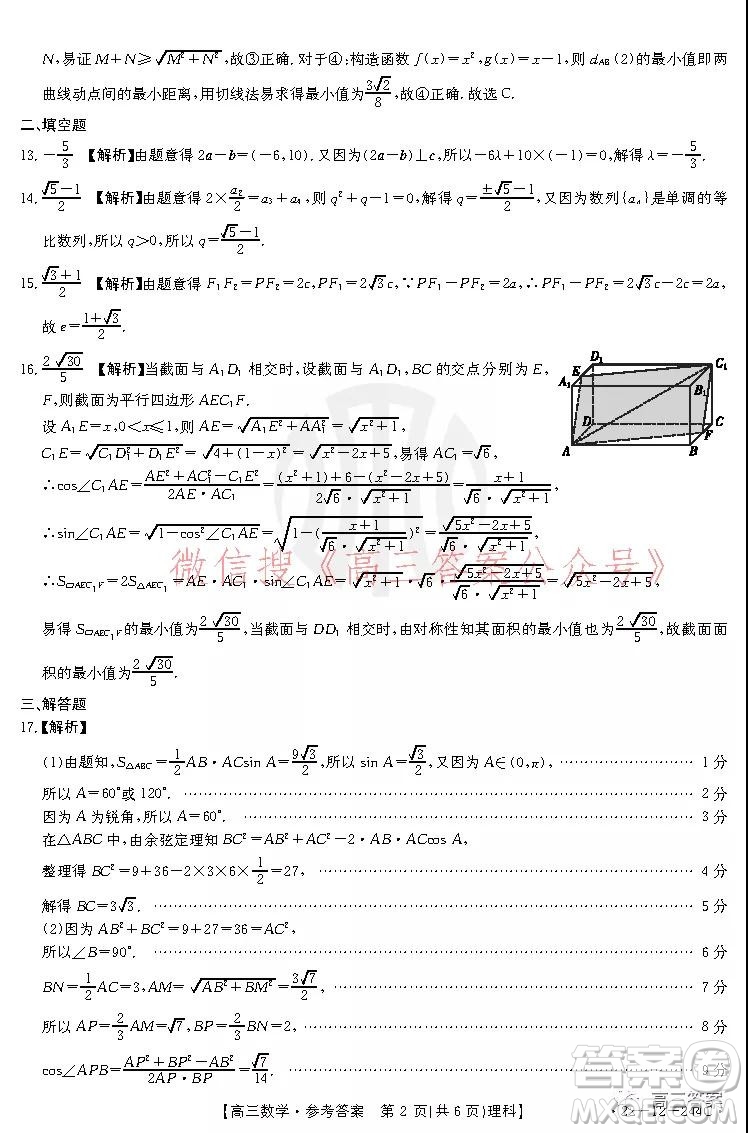 N,易证 M+N≥√(M²+N²),故③正确. 对于④:构造函数 f(x)=x²,g(x)=x−1,则 d_AB(2)的最小值即两
曲线动点间的最小距离,用切线法易求得最小值为 3√2/8,故④正确.故选 C.
二、填空题
13. −5/3 【解析】由题意得 2a−b=(−6,10). 又因为(2a−b)⊥c,所以−6λ+10×(−1)=0,解得 λ=−5/3.
14. (√5−1)/2 【解析】由题意得 2×a₂/2=a₃+a₄,则 q²+q−1=0,解得 q=(±√5−1)/2,又因为数列{aₙ}是单调的等
比数列,所以 q>0,所以 q=(√5−1)/2.
15. (√3+1)/2 【解析】由题意得 F₁F₂=PF₂=2c,PF₁=2√3c,∵PF₁−PF₂=2a,∴PF₁−PF₂=2√3c−2c=2a,
故 e=(1+√3)/2.
16. 2√30/5 【解析】当截面与 A₁D₁ 相交时,设截面与 A₁D₁,BC 的交点分别为 E,
F,则截面为平行四边形 AEC₁F.
设 A₁E=x,0<x≤1,则 AE=√(A₁E²+AA₁²)=√(x²+1),
C₁E=√(C₁D₁²+D₁E²)=√(4+(1−x)²)=√(x²−2x+5),易得 AC₁=√6,
∴cos∠C₁AE=(AE²+AC₁²−C₁E²)/(2AE·AC₁)=((x²+1)+6−(x²−2x+5))/(2√6·√(x²+1))=(x+1)/(√6·√(x²+1)),
∴sin∠C₁AE=√(1−cos²∠C₁AE)=√(1−((x+1)/(√6·√(x²+1)))²)=√(5x²−2x+5)/(√6·√(x²+1)),
∴S▱AEC₁F=2S△AEC₁=AE·AC₁·sin∠C₁AE=√(x²+1)·√6·√(5x²−2x+5)/(√6·√(x²+1))=√(5x²−2x+5),
易得 S▱AEC₁F的最小值为 2√30/5,当截面与 DD₁ 相交时,由对称性知其面积的最小值也为 2√30/5,故截面面
积的最小值为 2√30/5.
D₁
C₁
E
A₁
B₁
D
C
F
A
B
微信搜《高三答案公众号》
三、解答题
17.【解析】
(1)由题知,S△ABC=1/2 AB·ACsin A=9√3/2,所以 sin A=√3/2,又因为 A∈(0,π), …… 1 分
所以 A=60°或 120°. …… 2 分
因为 A 为锐角,所以 A=60°. …… 3 分
在△ABC 中,由余弦定理知 BC²=AB²+AC²−2·ABACcos A,
整理得 BC²=9+36−2×3×6×1/2=27, …… 4 分
解得 BC=3√3. …… 5 分
(2)因为 AB²+BC²=9+27=36=AC²,
所以∠B=90°. …… 6 分
BN=1/2 AC=3,AM=√(AB²+BM²)=3√7/2, …… 7 分
所以 AP=2/3 AM=√7,BP=2/3 BN=2, …… 8 分
cos∠APB=(AP²+BP²−AB²)/(2AP·BP)=√7/14. …… 9 分
【高三数学·参考答案 第 2 页(共 6 页)理科】
答案卷
高三答案